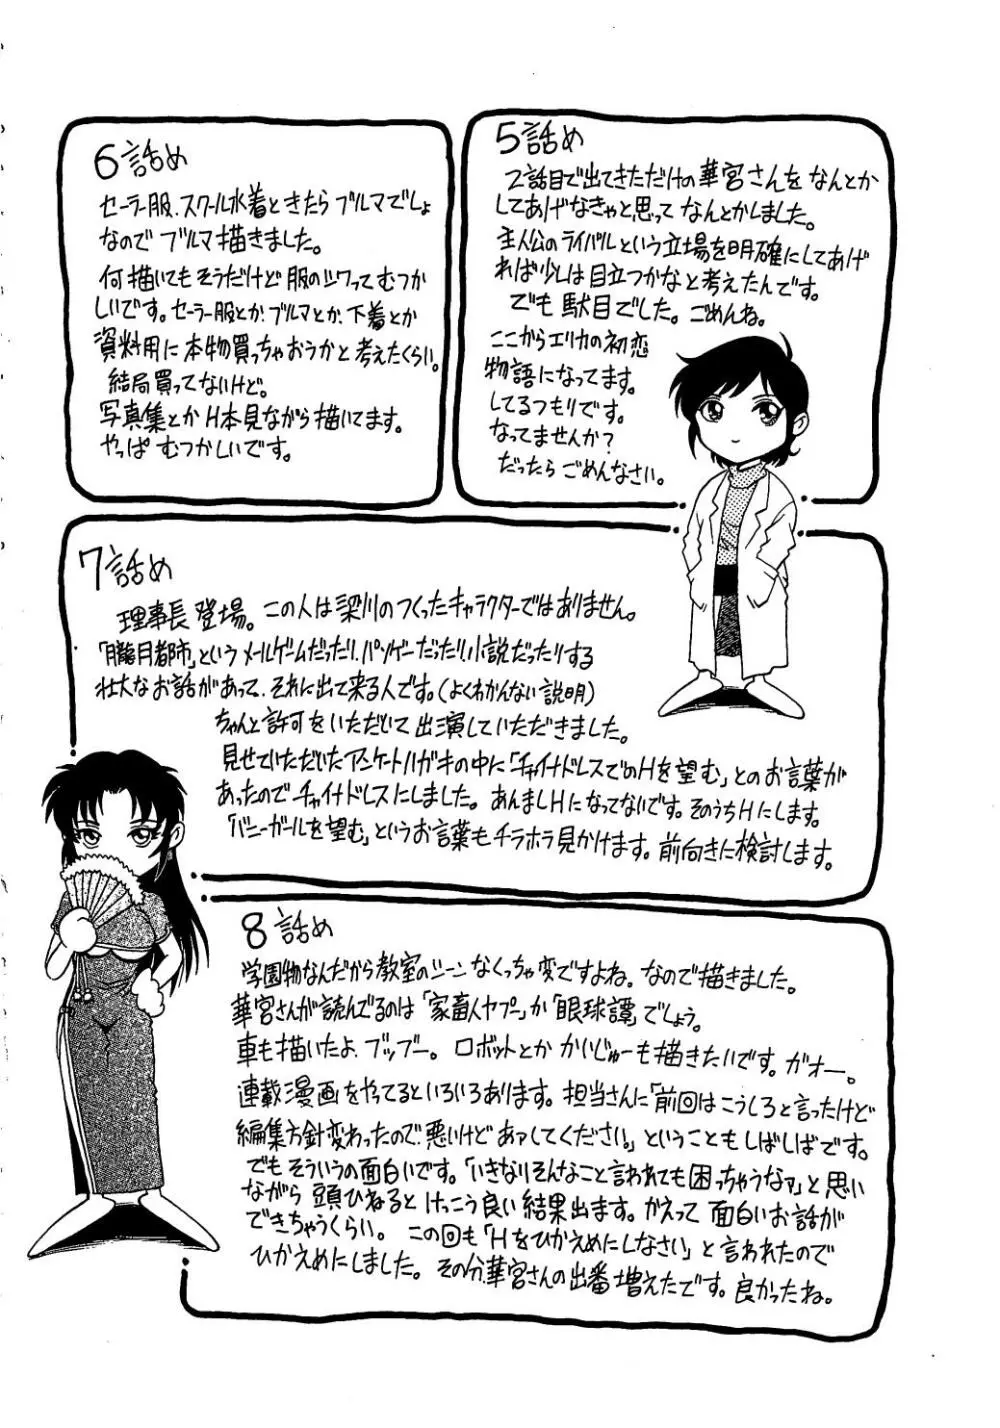 5話め
2話目で出てきただけの華宮さんを なんとか
してあげなきゃと思って なんとかしました。
主人公のライバルという立場を明確にしてあげ
れば少しは目立つかなと考えたんです。
でも 駄目でした。ごめんね。
ここからエリカの初恋
物語になってます。
してるつもりです。
なってませんか?
だったら ごめんなさい。
6話め
セーラー服、スクール水着ときたら ブルマでしょ
なので ブルマ描きました。
何描いてもそうだけど 服のシワって むつか
しいです。セーラー服とか、ブルマとか、下着とか
資料用に 本物買っちゃおうかと 考えたくらい。
結局買ってないけど。
写真集とか H本見ながら描いてます。
やっぱ むつかしいです。
7話め
理事長 登場。この人は梁川のつくったキャラクターではありません。
「朧月都市」というメールゲームだったり、パソゲーだったり、小説だったりする
壮大なお話があって、それに出て来る人です。(よくわかんない説明)
ちゃんと許可をいただいて 出演していただきました。
見せていただいたアンケートハガキの中に「チャイナドレスでのHを望む」とのお言葉が
あったので チャイナドレスにしました。あんましHになってないです。そのうちHにします。
「バニーガールを望む」というお言葉も チラホラ見かけます。前向きに検討します。
8話め
学園物なんだから教室のシーン なくっちゃ変ですよね。なので描きました。
華宮さんが読んでるのは「家畜人ヤプー」か「眼球譚」でしょう。
車も描いたよ。ブッブー。ロボットとか かいじゅーも描きたいです。ガオー。
連載漫画をやってるといろいろあります。担当さんに「前回はこうしろと言ったけど
編集方針変わったので悪いけどあァしてください。」ということもしばしばです。
でも そういうの面白いです。「いきなりそんなこと言われても困っちゃうなァ」と思い
ながら 頭ひねると けっこう良い結果出ます。かえって 面白いお話が
できちゃうくらい。この回も「Hをひかえめにしなさい」と言われたので
ひかえめにしました。その分、華宮さんの出番増えたです。良かったね。